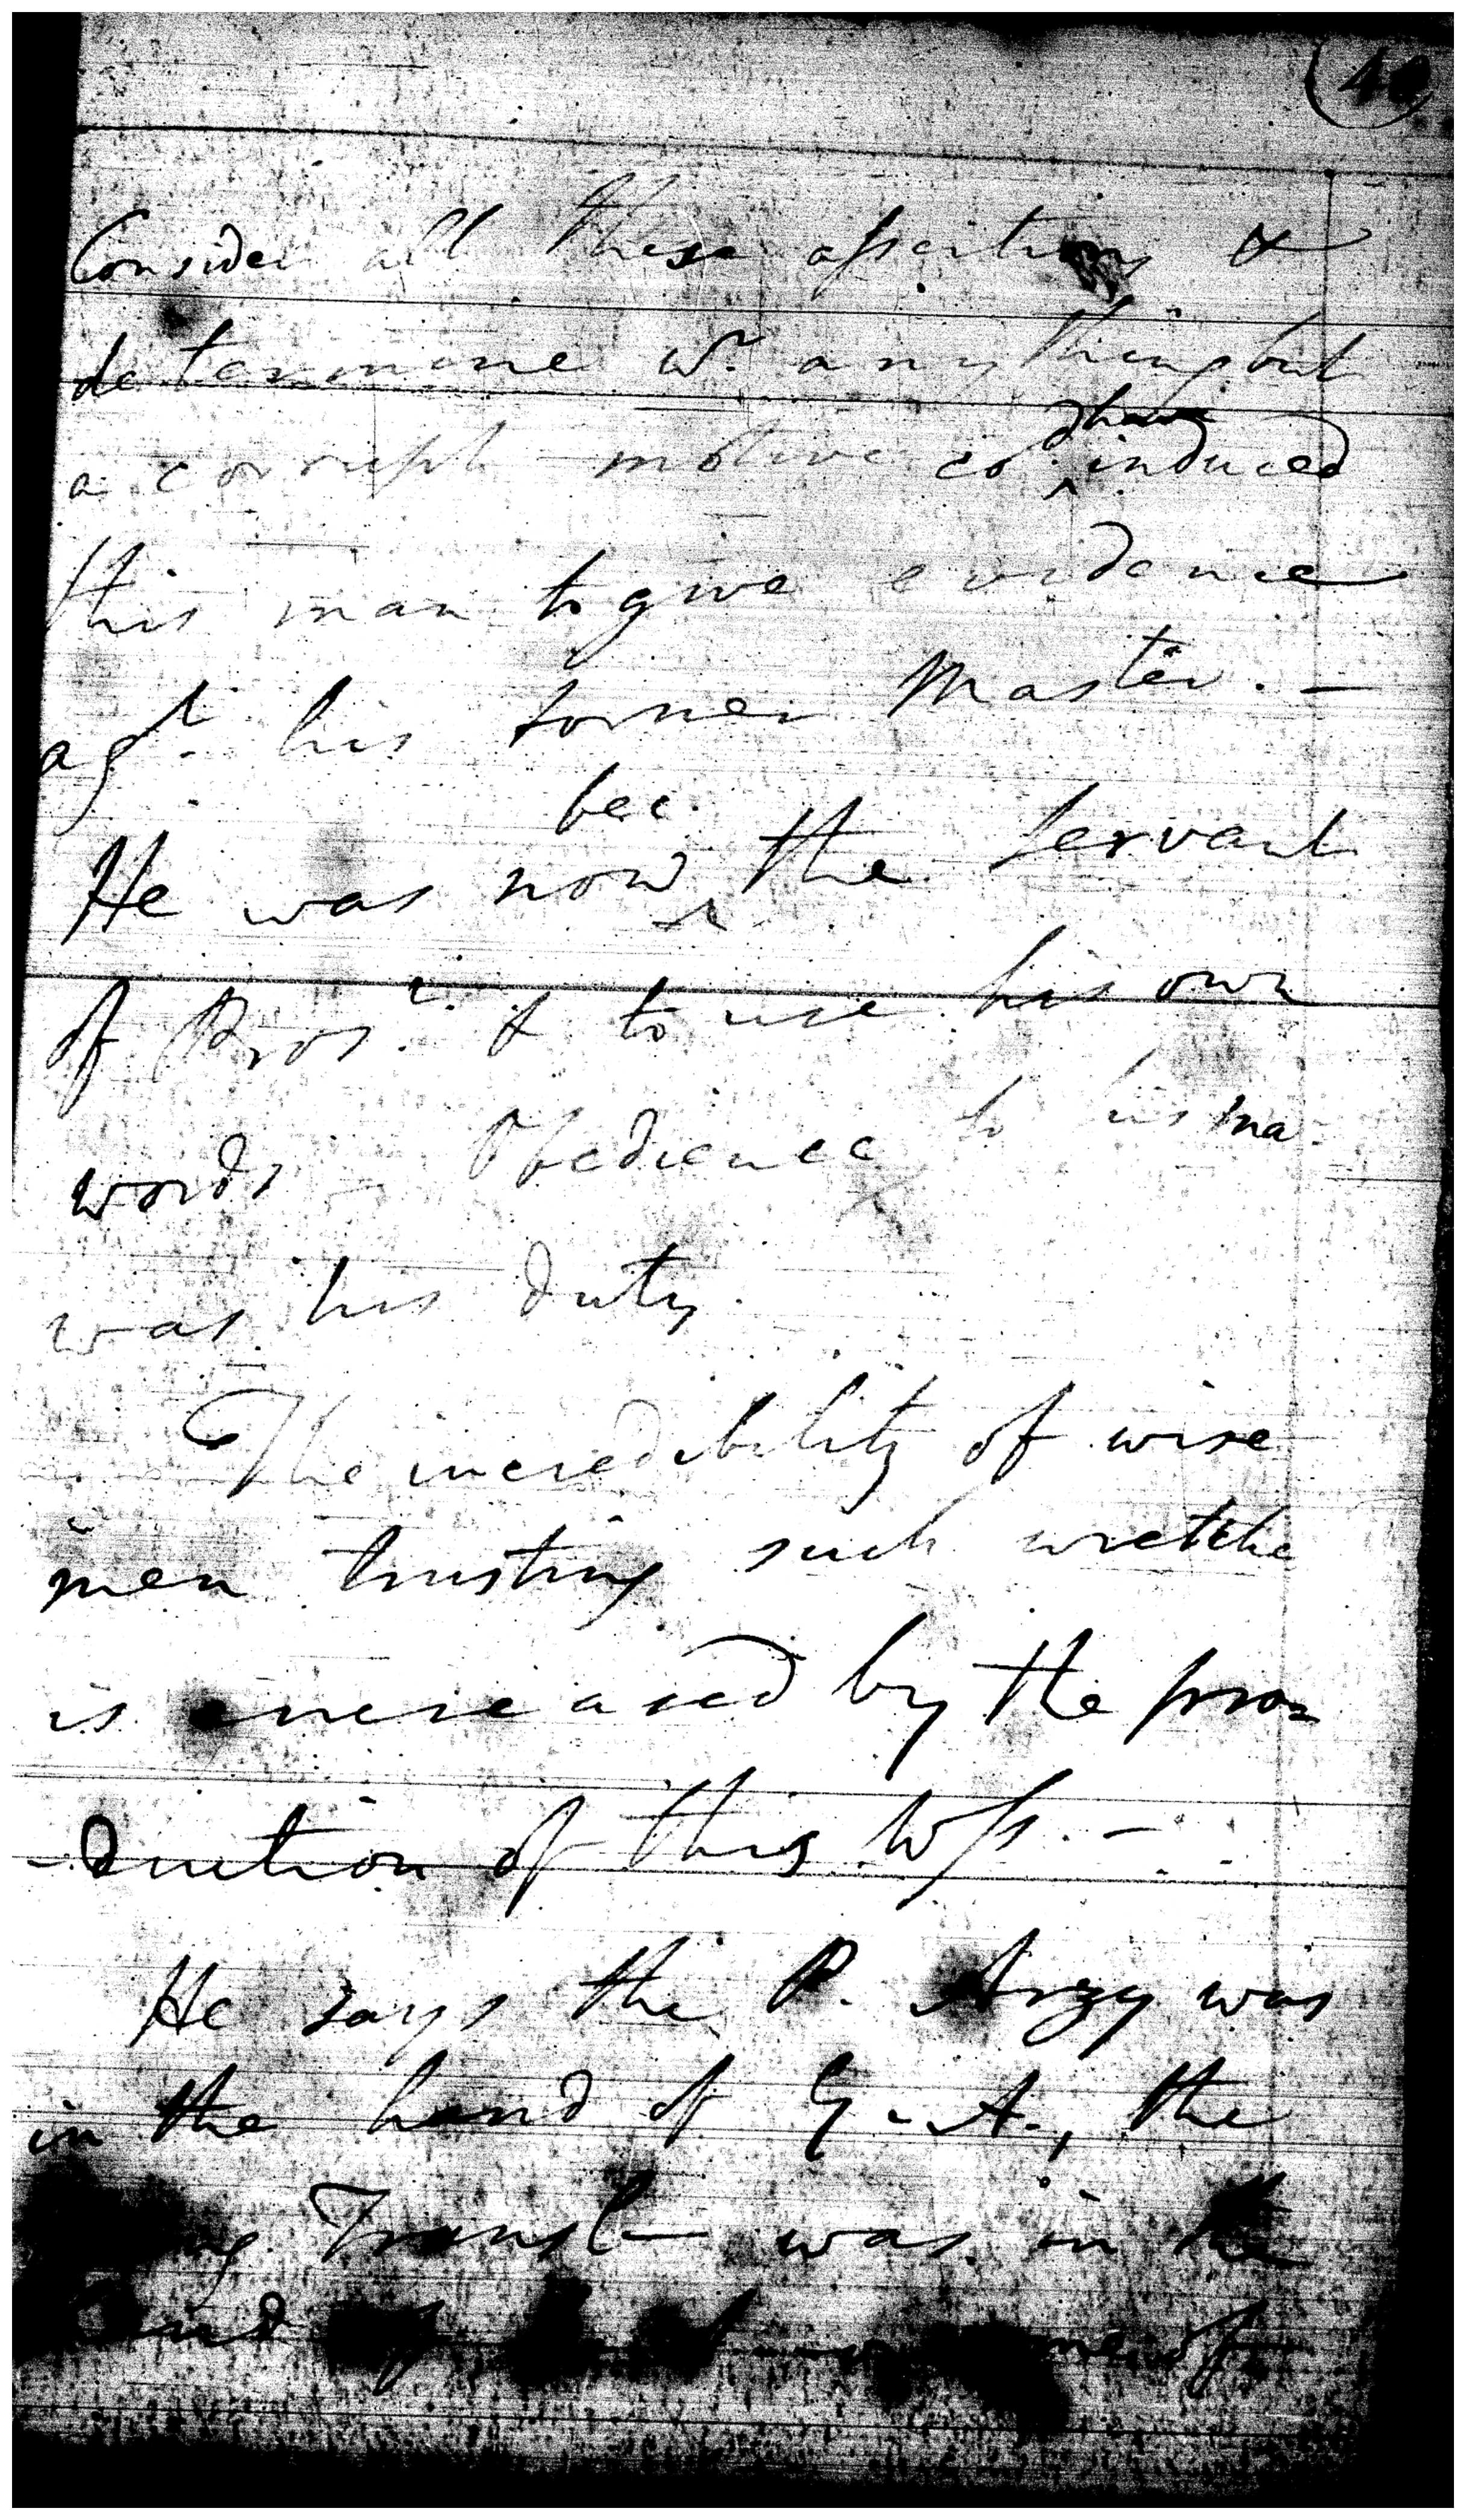 Consider all these assertions &
determine wr. anything but
have
a corrupt motive cod. induced
this man to give evidence
agt. his former Master. —
bec.
He was now the Servant
of Prosr. & to use his own
words Obedience to his ma-
was his duty.
The incredibility of wise
men trusting such wretche
is encreased by the pro=
-duction of this Wss. —
He says the P. Arzy was
in the hand of G. A., the
Transl was in the
hand of